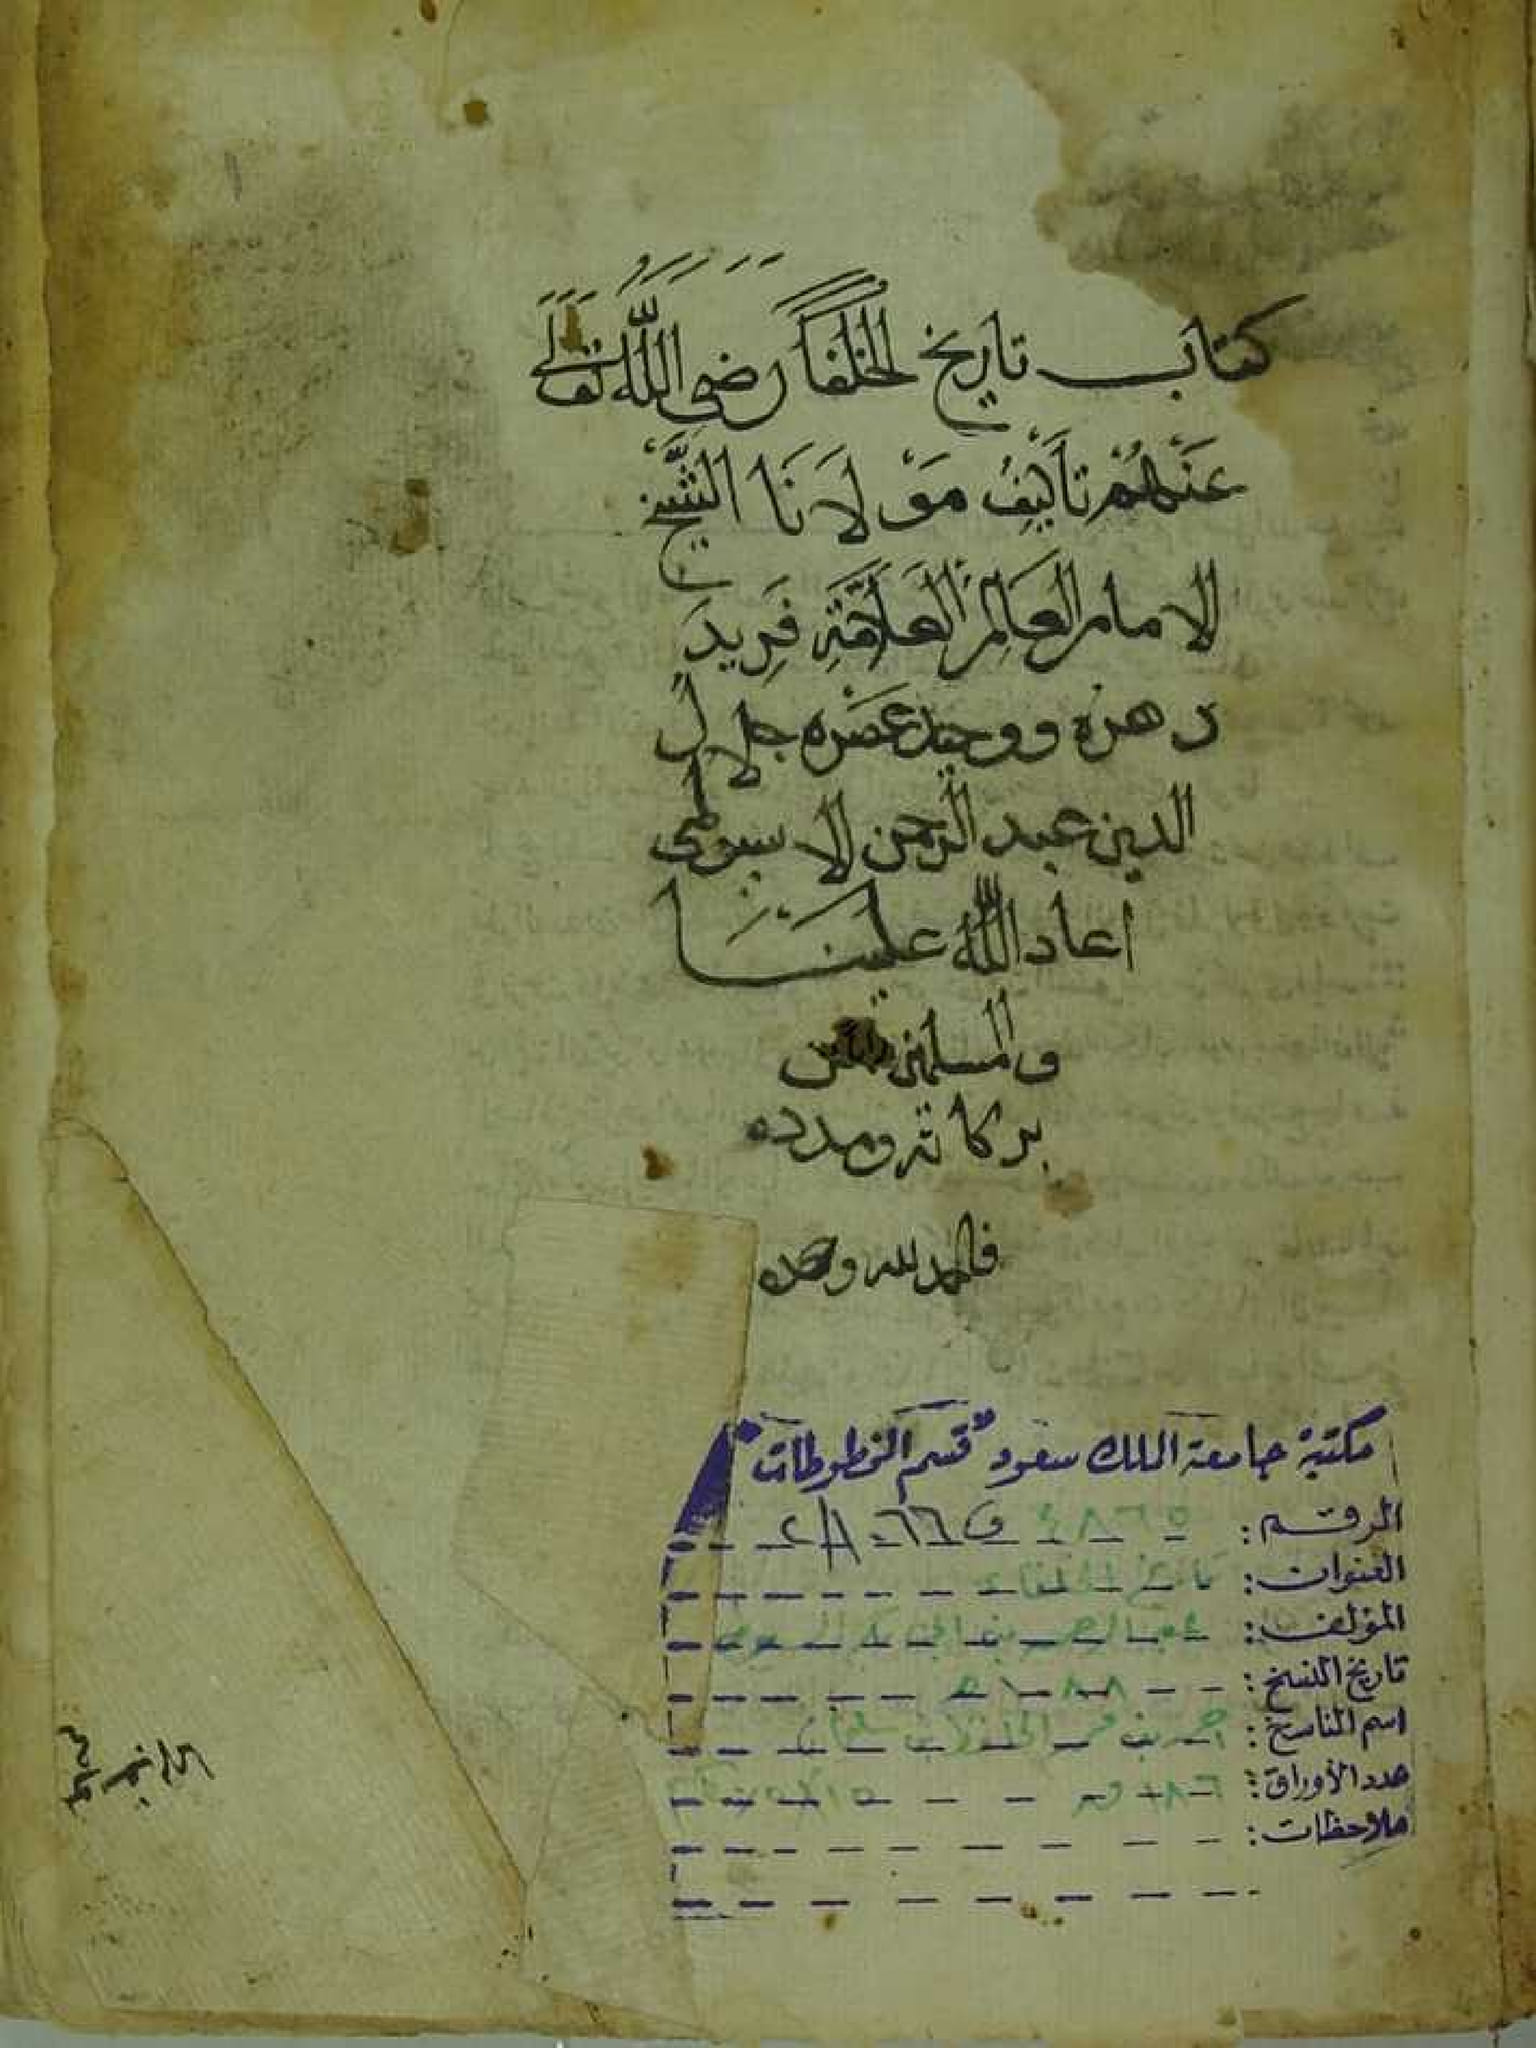 كتاب تاريخ الخلفا رضى الله تعالى
عَنْهُمْ تأليفُ مَوْلَانَا الشَّيْخ
الامام العَالِم العَلَّامَةِ فَرِيدَ
دهره ووحيد عصره جلال
الدين عبد الرحمن الاسيوطى
اعاد الله علينا
والمسلمين من
بركاته ومدده
فالحمد لله وحده
مكتبة جامعة الملك سعود "قسم المخطوطات"
الرقم: ٤٨٦٥ ف ٦٦٠ / ٢
العنوان: تاريخ الخلفاء
المؤلف: عبد الرحمن بن ابي بكر السيوطي
تاريخ النسخ:
اسم الناسخ: احمد بن
عدد الأوراق: ١٨٦ ق
ملاحظات: